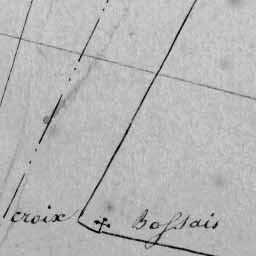 croix ✝ Bossais